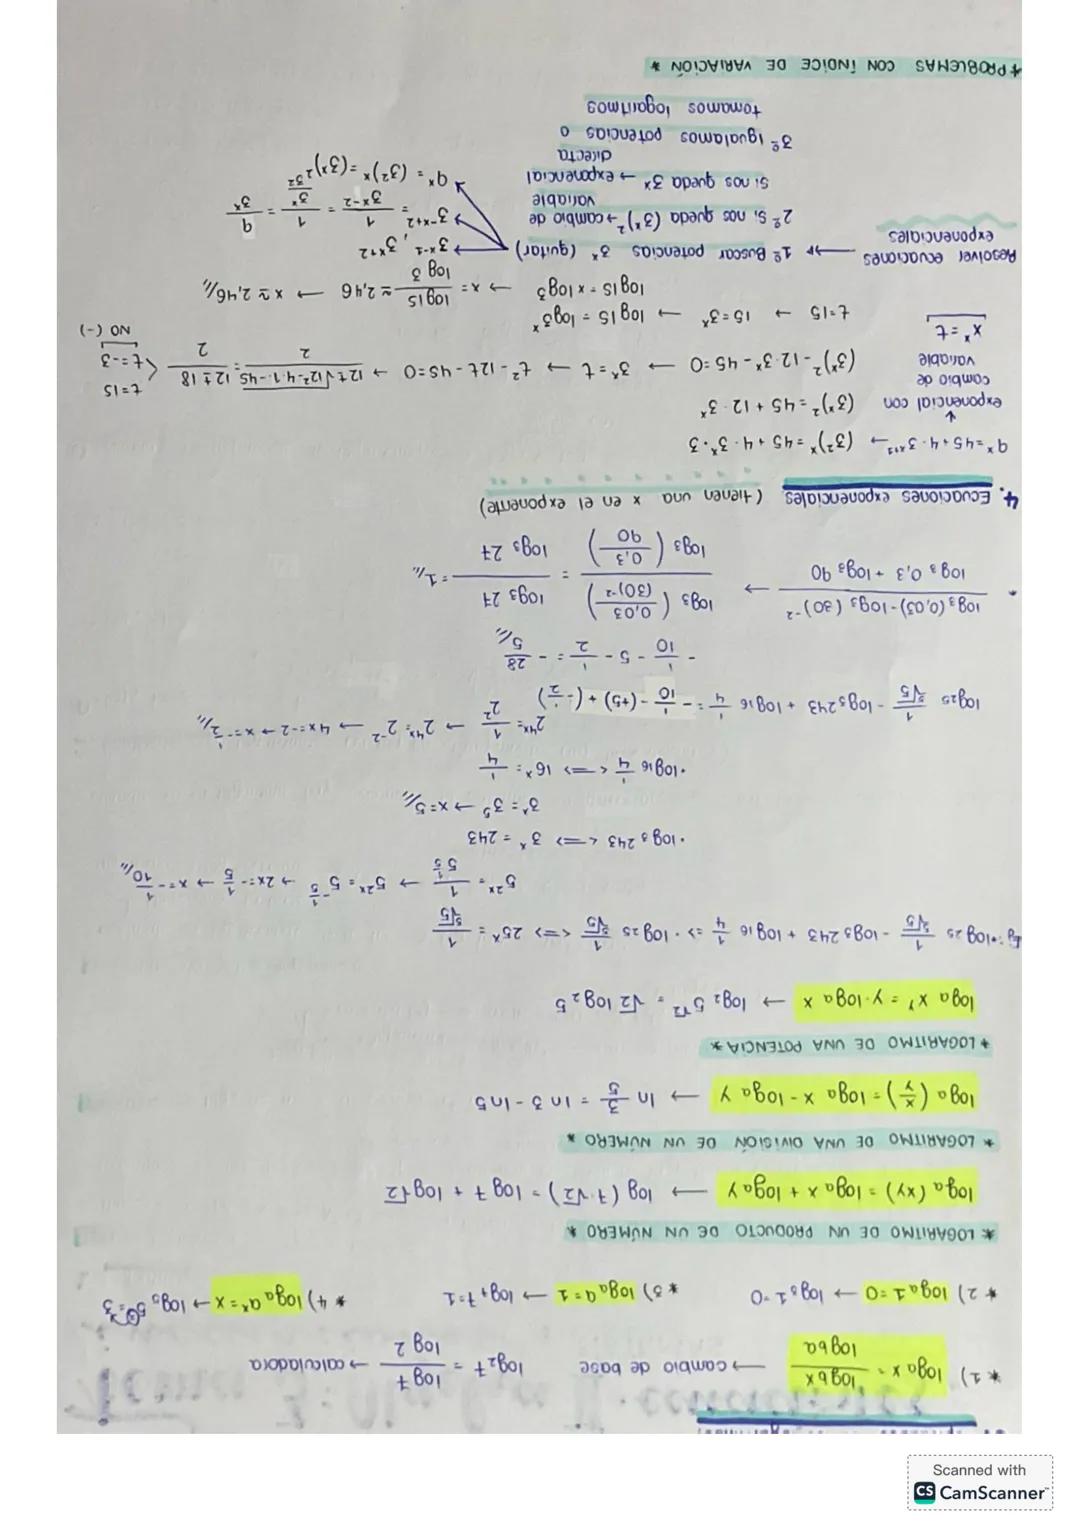 * 1) logₐ x = log_b x / log_b a → cambio de base log₂ 7 = log 7 / log 2 → calculadora
* 2) logₐ 1 = 0 → log₃ 1 = 0 * 3) logₐ a = 1 → log₇ 7 = 1 * 4) logₐ aˣ = x → log₅ 5³ = 3
* LOGARITMO DE UN PRODUCTO DE UN NÚMERO *
logₐ (xy) = logₐ x + logₐ y → log (7·√2) = log 7 + log √2
* LOGARITMO DE UNA DIVISIÓN DE UN NÚMERO *
logₐ (x/y) = logₐ x - logₐ y → ln 3/5 = ln 3 - ln 5
* LOGARITMO DE UNA POTENCIA *
logₐ xʸ = y·logₐ x → log₂ 5^√2 = √2 log₂ 5
Ej: • log₂₅ 1/⁵√5 - log₃ 243 + log₁₆ 1/4 => • log₂₅ 1/⁵√5 <=> 25ˣ = 1/⁵√5
5²ˣ = 1/5^(1/5) → 5²ˣ = 5^(-1/5) → 2x = -1/5 → x = -1/10 //
• log₃ 243 <=> 3ˣ = 243
3ˣ = 3⁵ → x = 5 //
• log₁₆ 1/4 <=> 16ˣ = 1/4
2⁴ˣ = 1/2² → 2⁴ˣ = 2⁻² → 4x = -2 → x = -1/2 //
log₂₅ 1/⁵√5 - log₃ 243 + log₁₆ 1/4 = -1/10 - (+5) + (-1/2)
-1/10 - 5 - 1/2 = -28/5 //
• log₃ (0,03) - log₃ (30)⁻² / log₃ 0,3 + log₃ 90 → log₃ (0,03/(30)⁻²) / log₃ (0,3/90) = log₃ 27 / log₃ 27 = 1 //
4. Ecuaciones exponenciales (tienen una x en el exponente)
9ˣ = 45 + 4 · 3ˣ⁺¹ → (3²)ˣ = 45 + 4 · 3ˣ · 3
↓
exponencial con (3ˣ)² = 45 + 12 · 3ˣ
cambio de
variable (3ˣ)² - 12·3ˣ - 45 = 0 → 3ˣ = t → t² - 12t - 45 = 0 → 12 ± √12² - 4·1·-45 / 2 = 12 ± 18 / 2 < t = 15
t = -3
NO (-)
xˣ = t
t = 15 → 15 = 3ˣ → log 15 = log 3ˣ
log 15 = x log 3 → x = log 15 / log 3 ≈ 2,46 → x ≈ 2,46 //
Resolver ecuaciones exponenciales → 1º Buscar potencias 3ˣ (quitar) → 3ˣ⁻¹, 3ˣ⁺²
2º Si nos queda (3ˣ)² → cambio de variable
3⁻ˣ⁺² = 1/3ˣ⁻² = 1/(3ˣ/3²) = 9/3ˣ
Si nos queda 3ˣ → exponencial directa
9ˣ = (3²)ˣ = (3ˣ)²
3º Igualamos potencias o
tomamos logaritmos
* PROBLEMAS CON ÍNDICE DE VARIACIÓN *
Scanned with
CS CamScanner